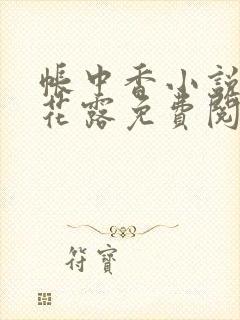 帳中香小說
花露免費閱
符寶